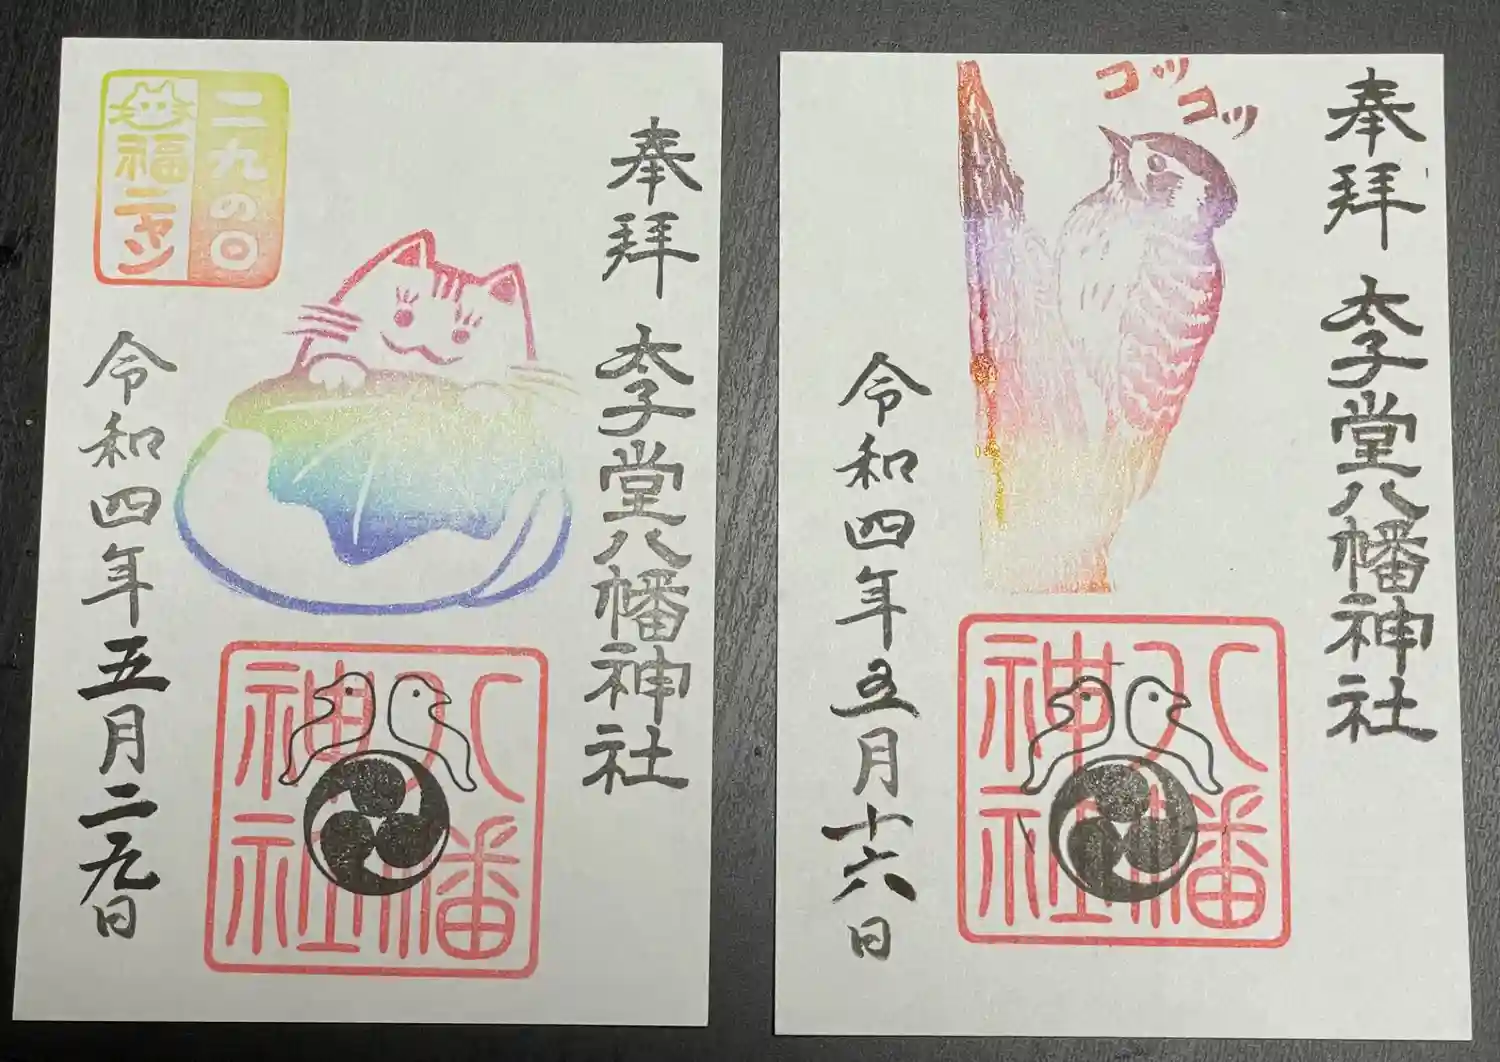 奉拝
太子堂八幡神社
二九の日
福ニャン
令和四年五月二九日
八幡
神社
コツコツ
奉拝
太子堂八幡神社
令和四年五月十六日
八幡
神社